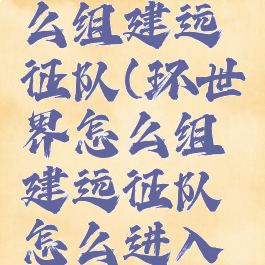 么组建远
征队(环世
界怎么组
建远征队
怎么进入